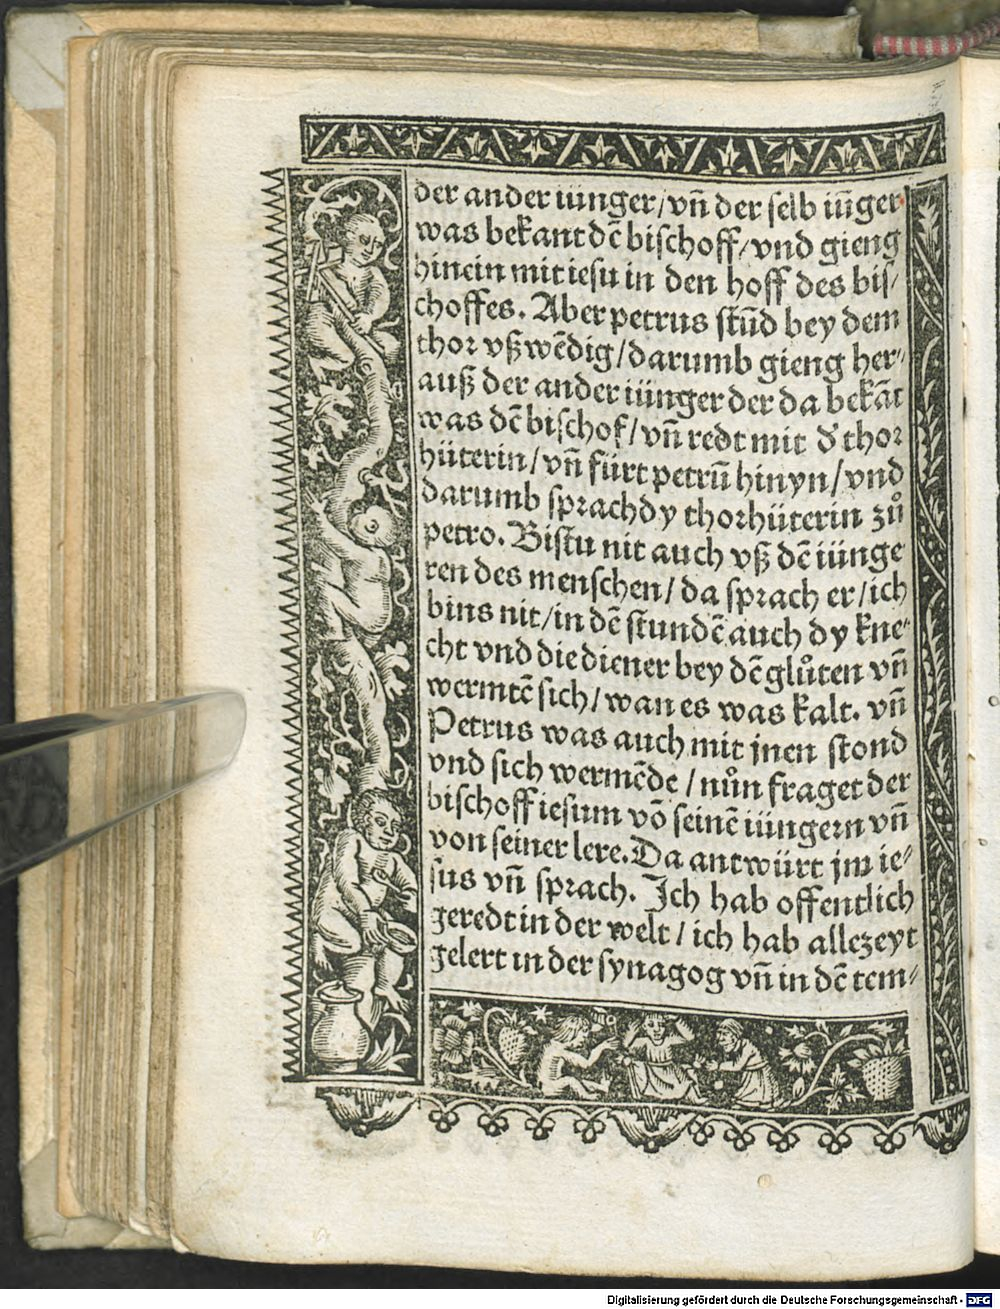 der ander iünger/vñ der selb iüger
was bekant dē bischoff/vnd gieng
hinein mit iesu in den hoff des bis/
choffes. Aber petrus stūd bey dem
thor vß wēdig/darumb gieng her/
auß der ander iünger der da bekāt
was dē bischof/vñ redt mit d' thor
hüterin/vñ fürt petrū hinyn/vnd
darumb sprach dy thorhüterin zů
petro. Bistu nit auch vß dē iünge
ren des menschen/da sprach er/ich
bins nit/in dē stundē auch dy kne/
cht vnd die diener bey dē glůten vñ
wermtē sich/wan es was kalt. vñ
Petrus was auch mit jnen stond
vnd sich wermēde/nůn fraget der
bischoff iesum vō seinē iüngern vñ
von seiner lere. Da antwürt jm ie/
sus vñ sprach. Ich hab offentlich
geredt in der welt/ich hab allezeyt
gelert in der synagog vñ in dē tem/
Digitalisierung gefördert durch die Deutsche Forschungsgemeinschaft - DFG